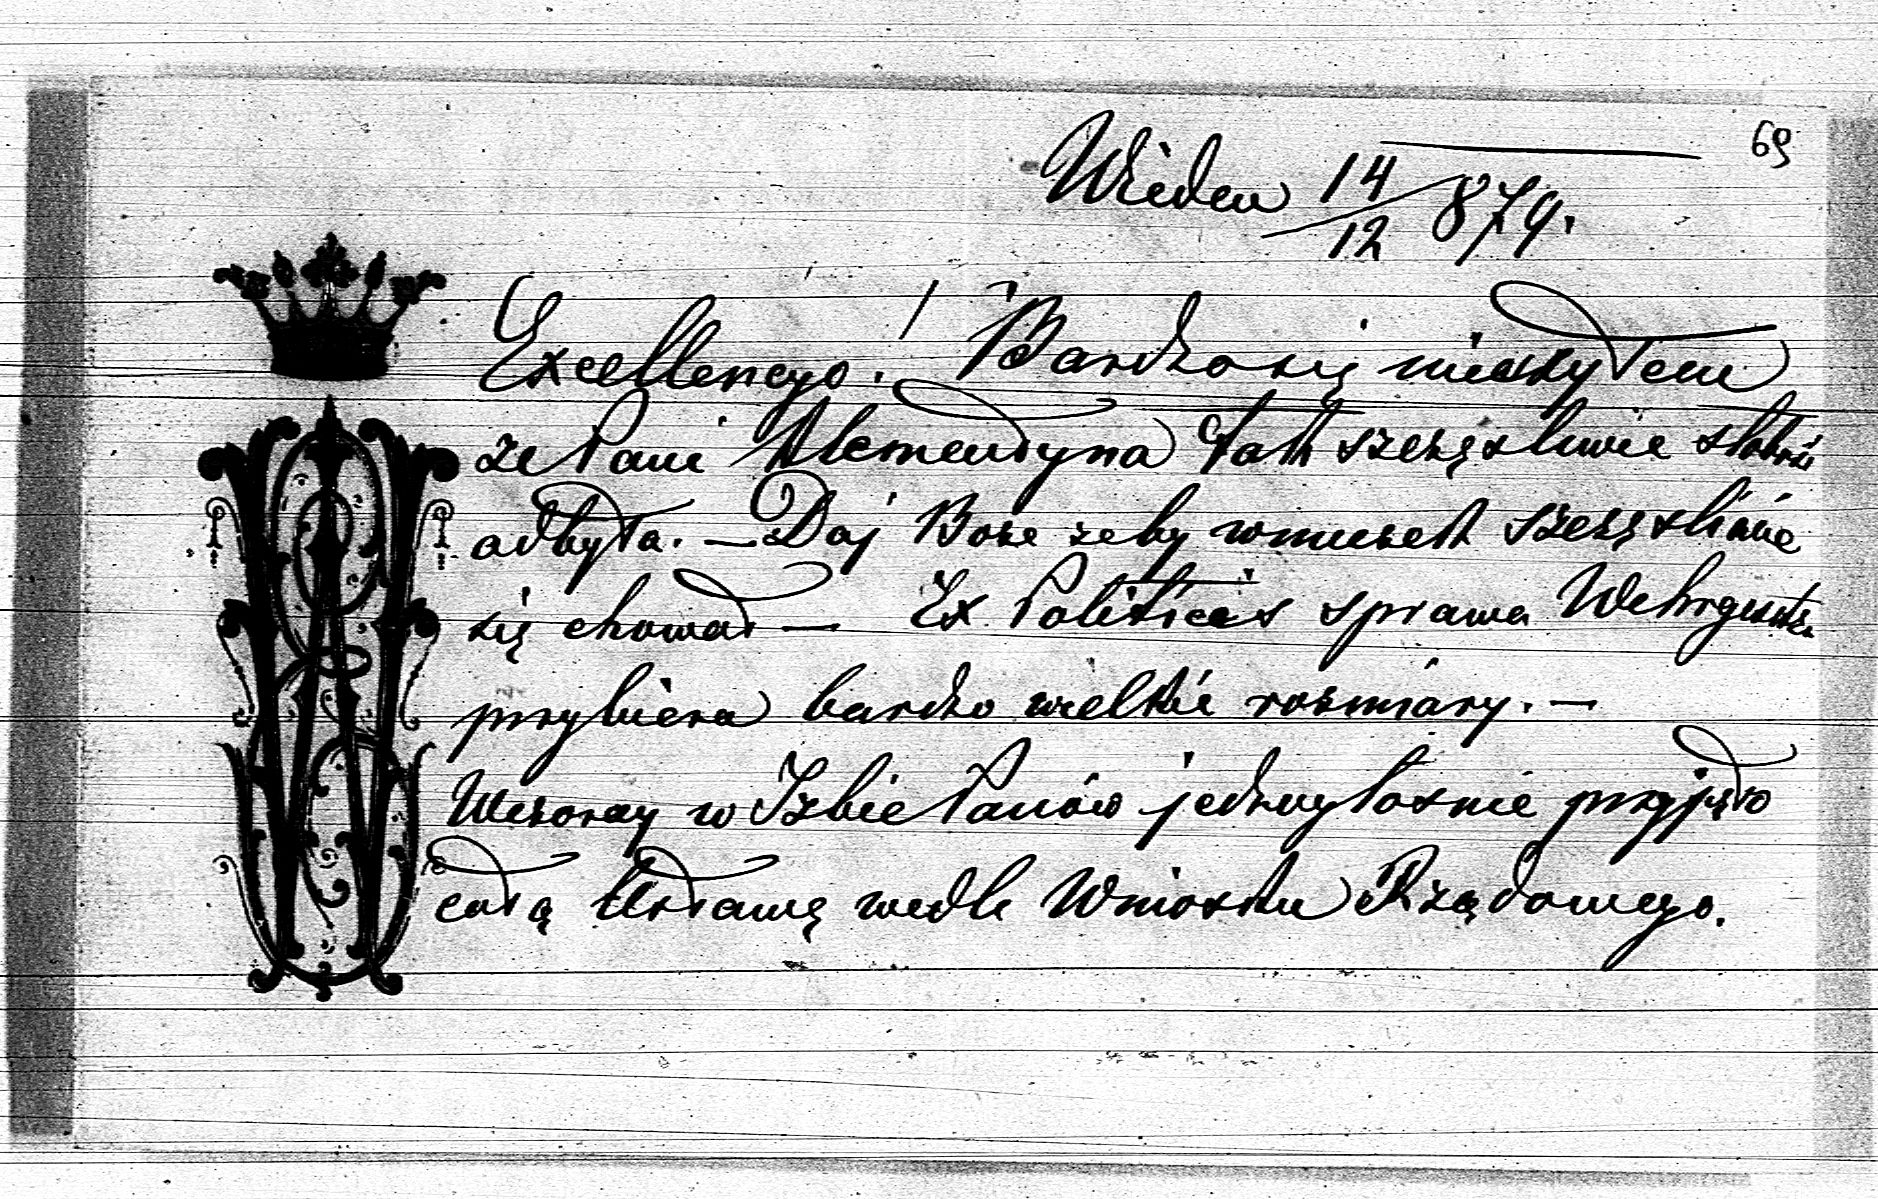 69
Wiedeń 14/12 879.
Excellencyo! Bardzo się cieszyłem
że Pani Klementyna tak szczęśliwie słabość
odbyła. — Daj Boże żeby wnuczek szczęśliwie
się chował — Ex Politicis sprawa Wehrgesetz
przybiera bardzo wielkie rozmiary. —
Wczoraj w Izbie Panów jednogłośnie przyjęto
całą Ustawę wedle Wniosku Rządowego.